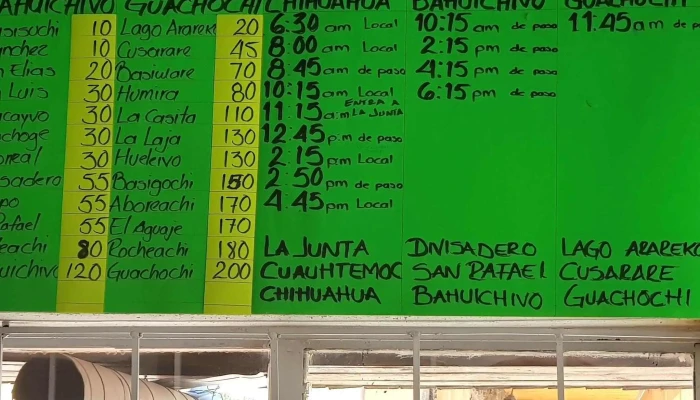 BAHUICHIVO GUACHOCHI CHIHUAHUA BAHUICHIVO GUACHOCHI
10 Lago Arareko 20 6:30 am Local 10:15 am de paso 11:45 am de
10 Cusarare 45 8:00 am Local 2:15 pm de paso
Elias 20 Basiware 70 8:45 am de paso 4:15 pm de paso
Luis 30 Humira 80 10:15 am Local 6:15 pm de paso
30 La Casita 110 11:15 a:m ENTRA A LA JUNTA
30 La Laja 130 12:45 p.m de paso
30 Hueleivo 130 2:15 pm Local
55 Basigochi 150 2:50 pm de paso
55 Aboreachi 170 4:45 pm Local
55 El Aguaje 170
80 Rocheachi 180 LA JUNTA DIVISADERO LAGO ARAREKO
120 Guachochi 200 CUAUHTEMOC SAN RAFAEL CUSARARE
CHIHUAHUA BAHUICHIVO GUACHOCHI